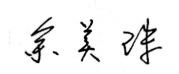 余美珠